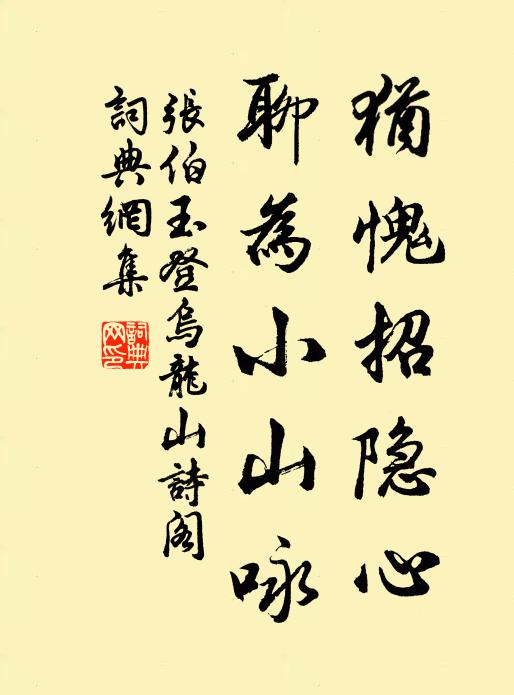 猶愧招隐心
聊為小山咏
張伯玉登烏龍山詩阁
詞典網集
詞典
网印